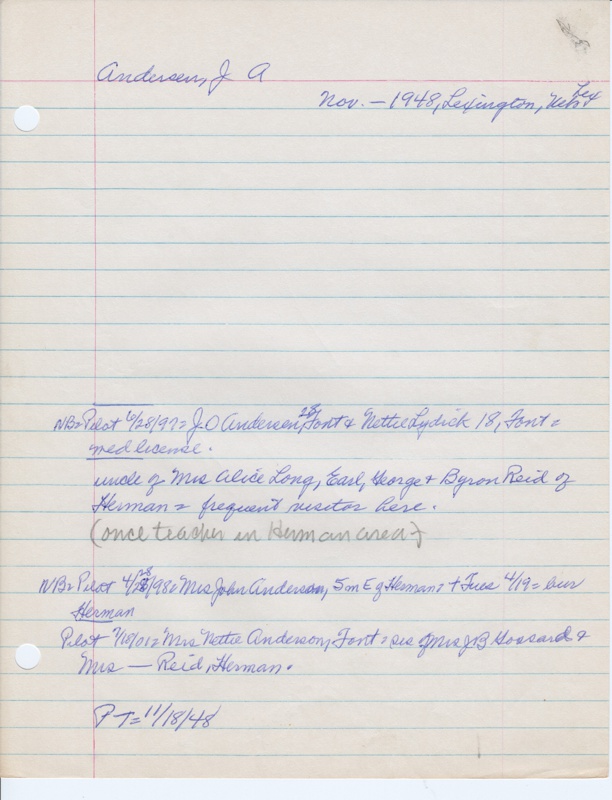 Andersen, J A
Lex
Nov. - 1948, Lexington, Neb
NB = Pilot 6/28/97 = J.O Andersen, 28, Font & Nettie Lydick 18, Font =
wed license.
uncle of Mrs Alice Long, Earl, George + Byron Reid of
Herman = frequent visitor here.
(once teacher in Herman area)
NB = Pilot 4/28/98 = Mrs John Anderson, 5m E of Herman = + Tues 4/19 = bur
Herman
Pilot 7/18/01 = Mrs Nettie Anderson, Font = sis of Mrs J B Gossard &
Mrs — Reid, Herman.
PT = 11/18/48